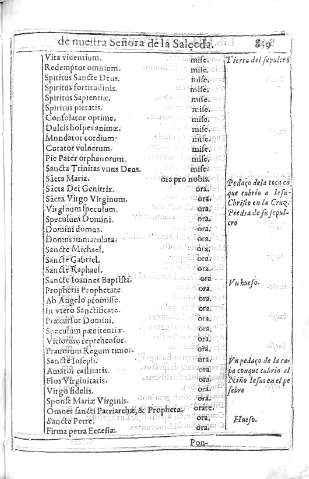 de nuestra Señora de la Salçeda. 819
Vita viventium. mise.
Redemptor omnium. mise.
Spiritus Sancte Deus. mise.
Spiritus fortitudinis. mise.
Spiritus Sapientiæ. mise.
Spiritus pietatis. mise.
Consolator optime. mise.
Dulcis hospes animæ. mise.
Mundator cordium. mise.
Curator vulnerum. mise.
Pie Pater orphanorum. mise.
Sancta Trinitas vnus Deus. mise.
Sãcta Maria. ora pro nobis.
Sãcta Dei Genitrix. ora.
Sãcta Virgo Virginum. ora.
Virginum speculum. ora.
Speculum Domini. ora.
Domini domus. ora.
Domus immaculata. ora.
Sancte Michael. ora.
Sancte Gabriel. ora.
Sancte Raphael. ora.
Sancte Ioannes Baptista. ora.
Prophetis Prophetate. ora.
Ab Angelo promisse. ora.
In vtero Sanctificate. ora.
Præcursor Domini. ora.
Speculum pœnitentiæ. ora.
Vitiorum reprehensor. ora.
Prauorum Regum timor. ora.
Sancte Ioseph. ora.
Amator castitatis. ora.
Flos Virginitatis. ora.
Virgo fidelis. ora.
Sponse Mariæ Virginis. ora.
Omnes sancti Patriarchæ, & Prophetæ. orate.
Sancte Petre. ora.
Firma petra Ecclesiæ. ora.
Pon-
Tierra del sepulcro
Pedaço de la toca cõ
que cubrio a Iesu-
Christo en la Cruz.
Piedra de su sepul-
cro
Vn hueso.
Vn pedaço de la ca-
pa con que cubrio al
Niño Iesus en el pe
sebre
Hueso.